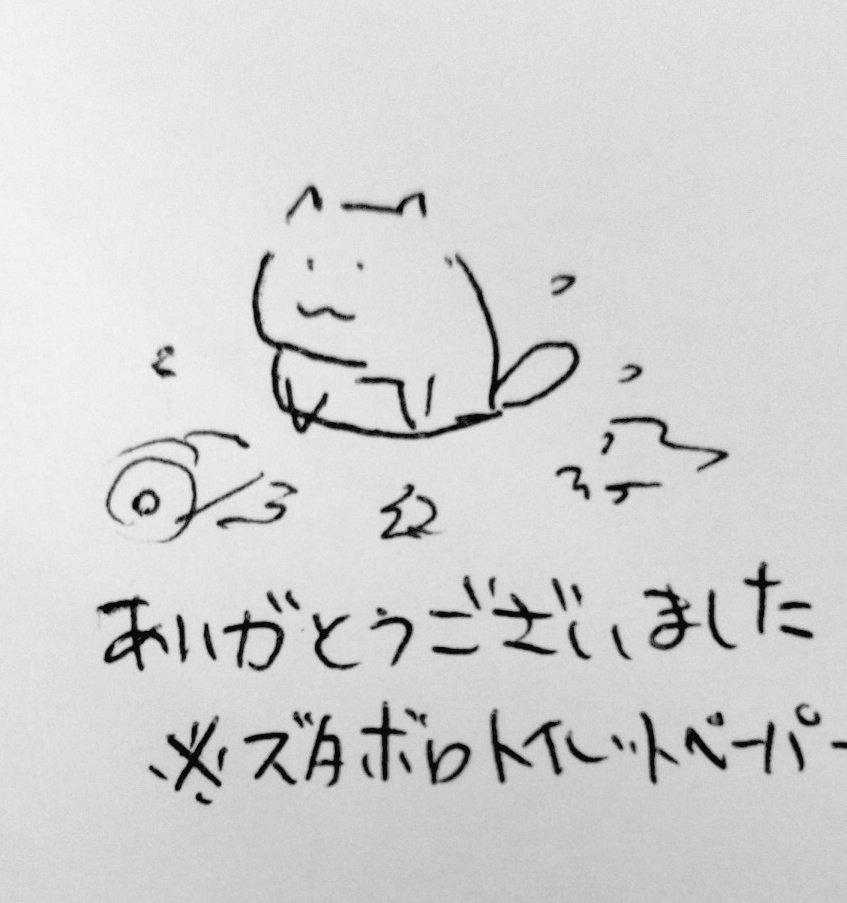 ありがとうございました
※ズタボロトイレットペーパー